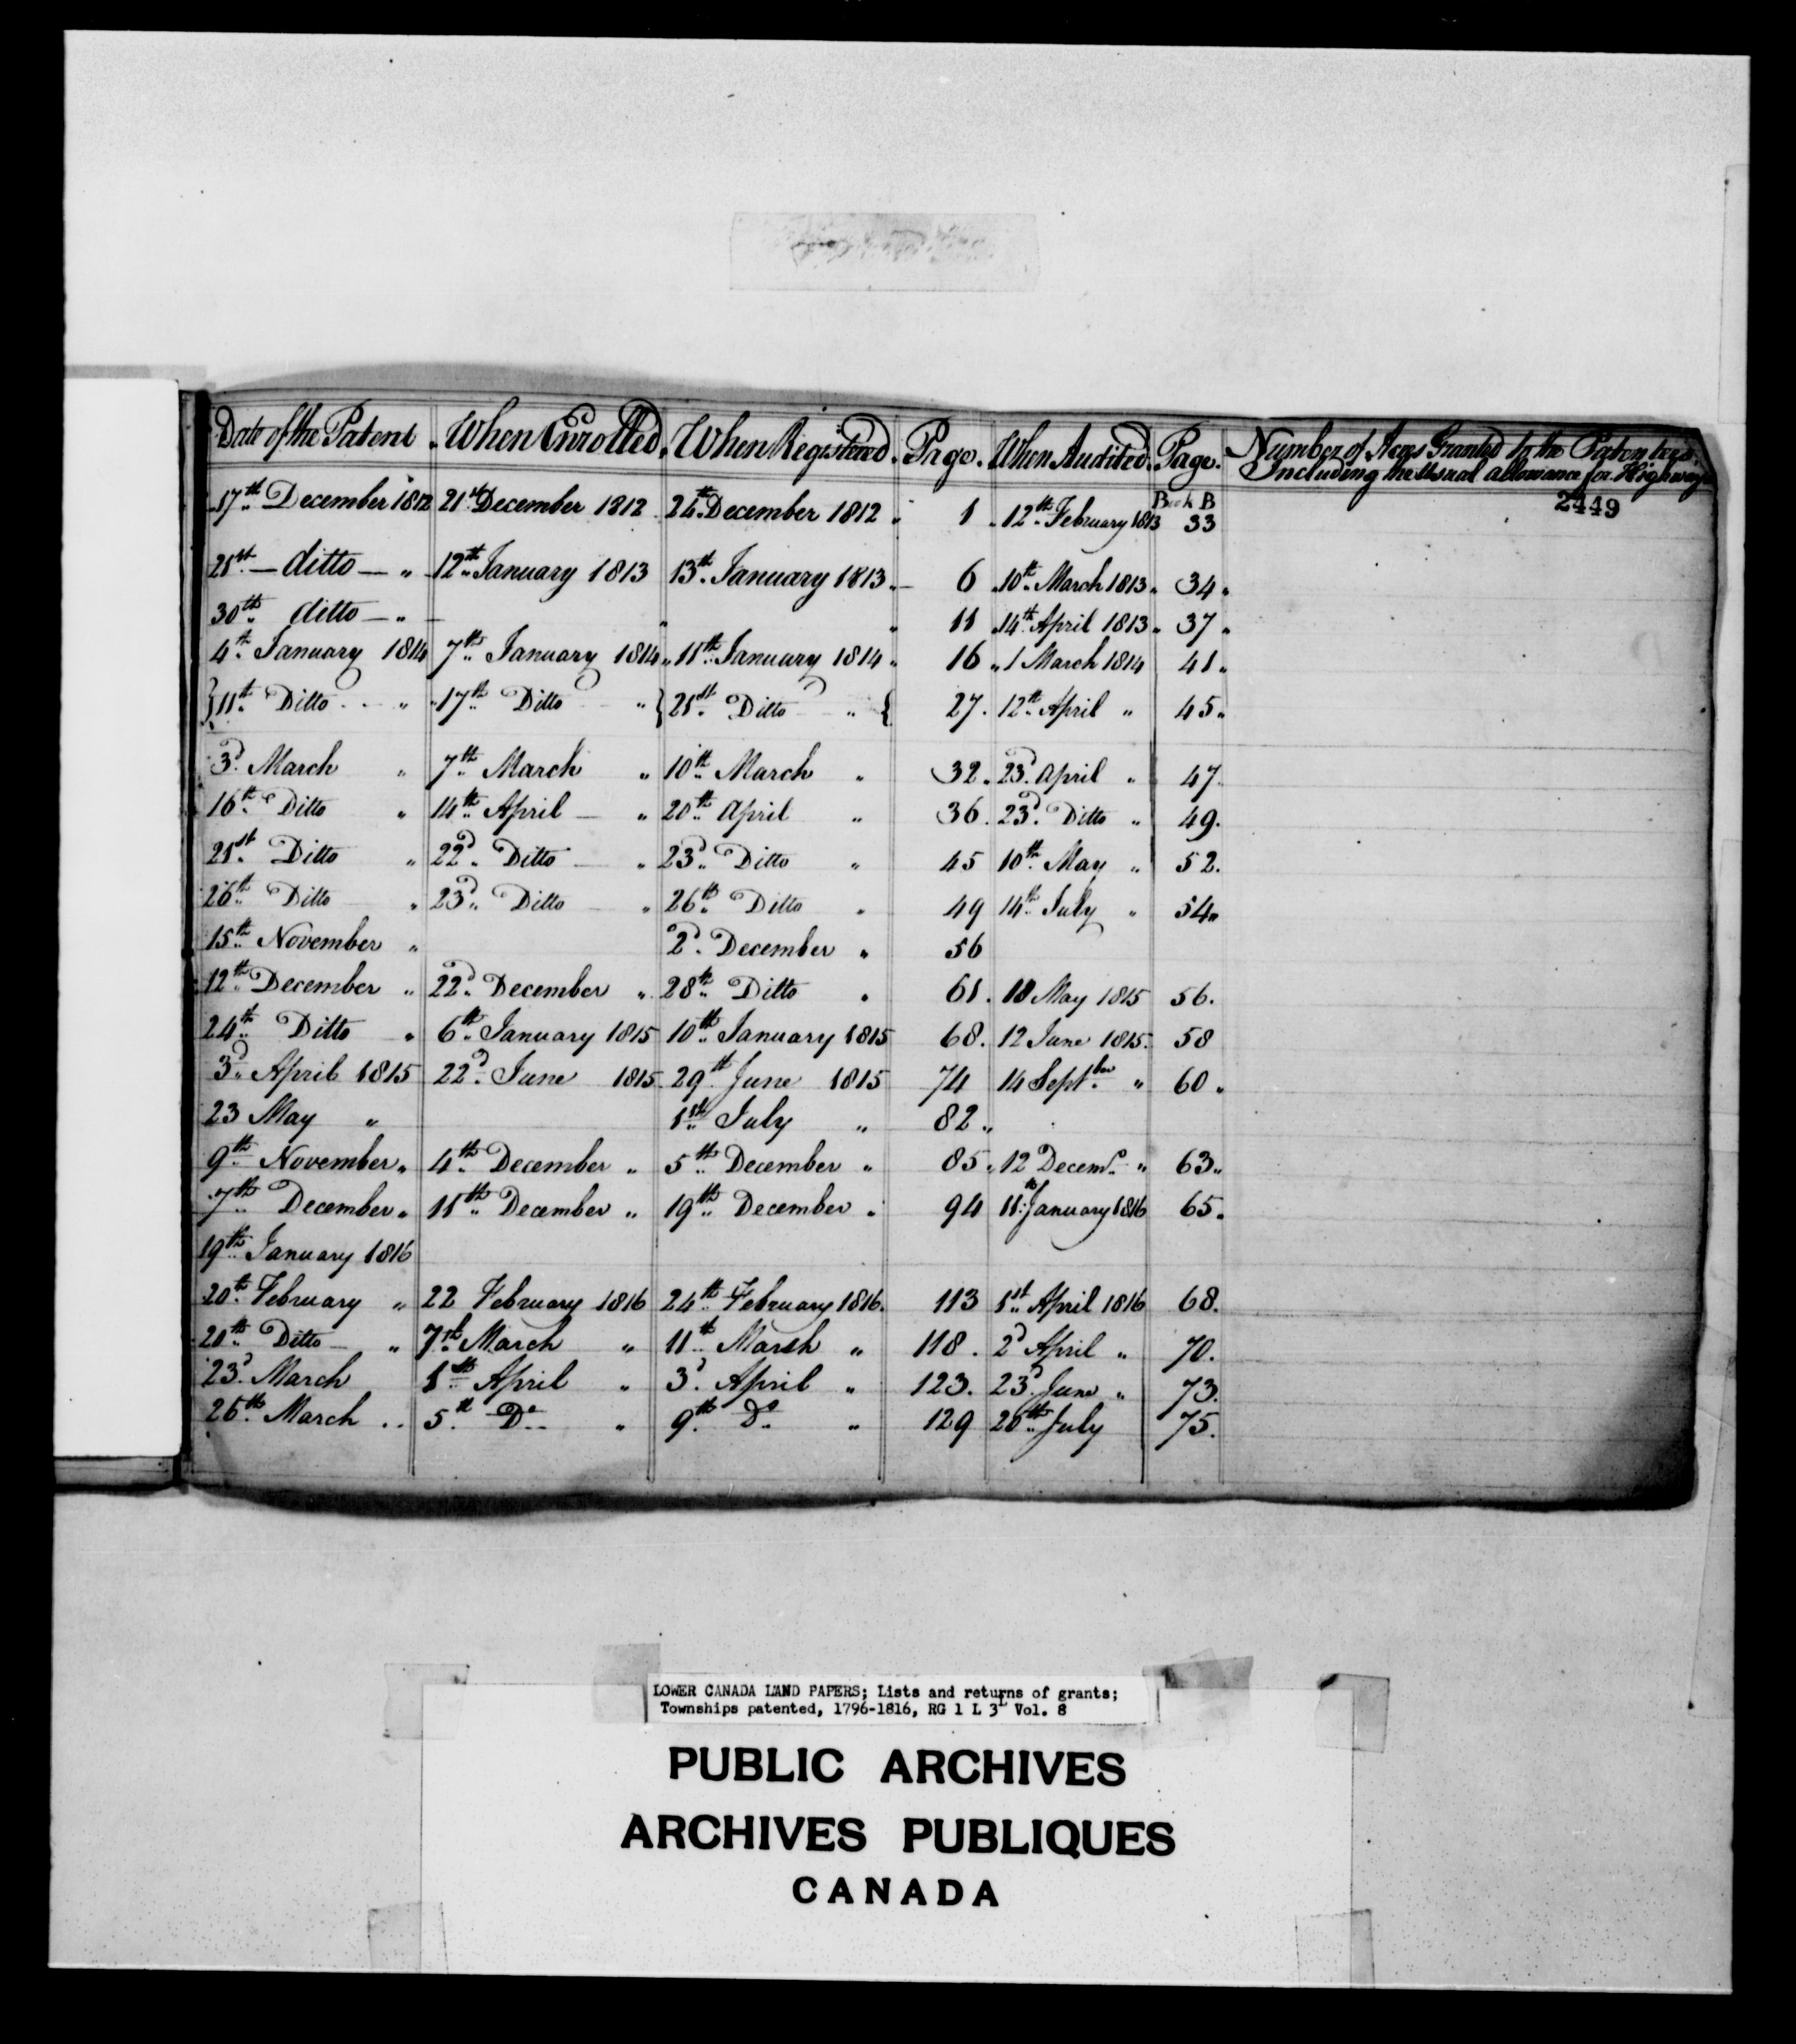 Date of the Patent . When Enrolled . When Registered . Page . When Audited . Page . Number of Acres Granted to the Patentees,
Including the Usual allowance for Highways
Book B
2449
17th December 1812 21st December 1812 24th December 1812 " 1 " 12th February 1813 33
21st — ditto — " 12th January 1813 13th January 1813 " 6 " 10th March 1813 " 34 "
30th ditto — " — " " 11 " 14th April 1813 " 37 "
4th January 1814 7th January 1814 " 11th January 1814 " 16 " 1 March 1814 41 "
} 11th Ditto " 17th Ditto " } 21st Ditto " { 27 . 12th April " 45 "
3d March " 7th March " 10th March " 32 " 23d April " 47
16th Ditto " 14th April — " 20th April " 36 . 23d Ditto " 49.
21st Ditto " 22d Ditto " 23d Ditto " 45 10th May " 52.
26th Ditto " 23d Ditto " 26th Ditto " 49 14th July " 54 "
15th November " 2d December " 56
12th December " 22d December " 28th Ditto " 61 . 18 May 1815 56.
24th Ditto " 6th January 1815 10th January 1815 68. 12 June 1815. 58
3d April 1815 22d June 1815 29th June 1815 74 14 Septber " 60 "
23 May " 1st July " 82 "
9th November " 4th December " 5th December " 85 " 12 Decemr " 63 "
7th December " 11th December " 19th December " 94 11th January 1816 65 "
19th January 1816
20th February " 22 February 1816 24th February 1816. 113 1st April 1816 68.
20th Ditto — " 7th March " 11th March " 118 . 2d April " 70.
23d March 1st April " 3d April " 123. 23d June " 73.
26th March " 5th Do " 9th Do " 129 20th July 75.
LOWER CANADA LAND PAPERS; Lists and returns of grants;
Townships patented, 1796-1816, RG 1 L 3L Vol. 8
PUBLIC ARCHIVES
ARCHIVES PUBLIQUES
CANADA